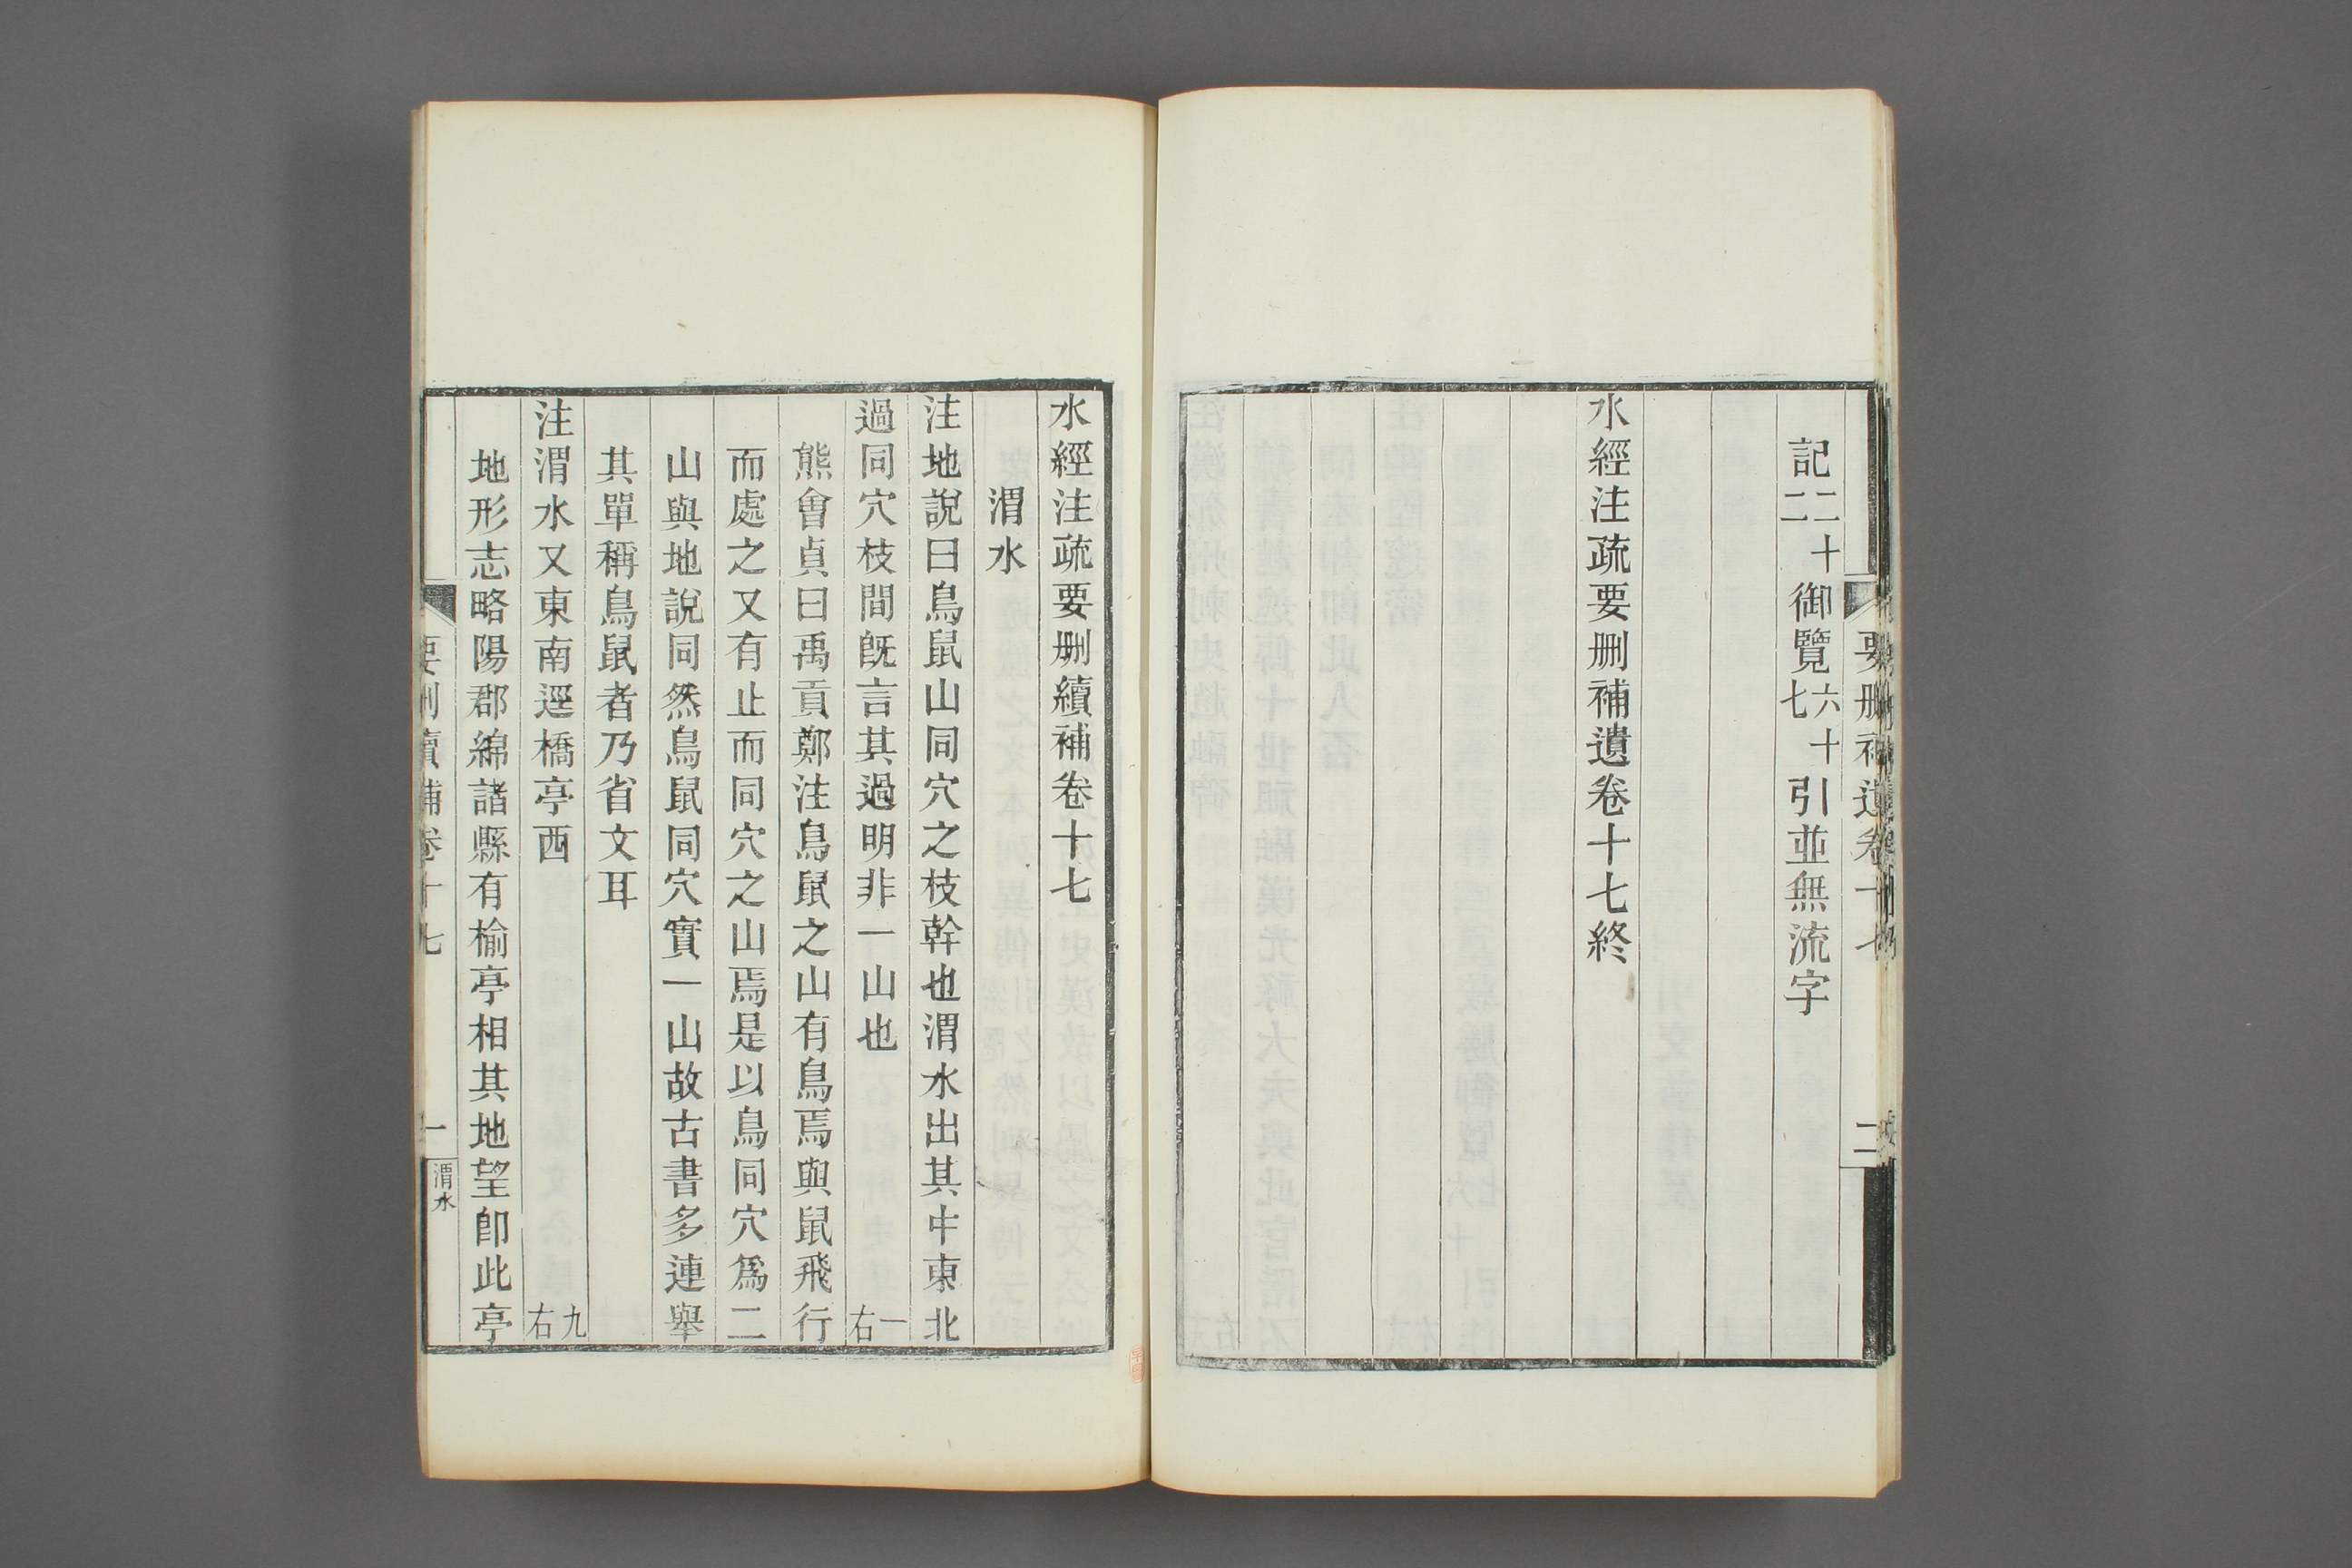 要刪補遺卷十七
二
記二十二御覽六十七引並無流字
水經注疏要刪補遺卷十七終
水經注疏要刪續補卷十七
渭水
注地說曰鳥鼠山同穴之枝幹也渭水出其中東北
過同穴枝間旣言其過明非一山也 一右
熊會貞曰禹貢鄭注鳥鼠之山有鳥焉與鼠飛行
而處之又有止而同穴之山焉是以鳥同穴爲二
山與地說同然鳥鼠同穴實一山故古書多連舉
其單稱鳥鼠者乃省文耳
注渭水又東南逕橋亭西 九右
地形志略陽郡綿諸縣有榆亭相其地望卽此亭
要刪續補卷十七
一
渭水